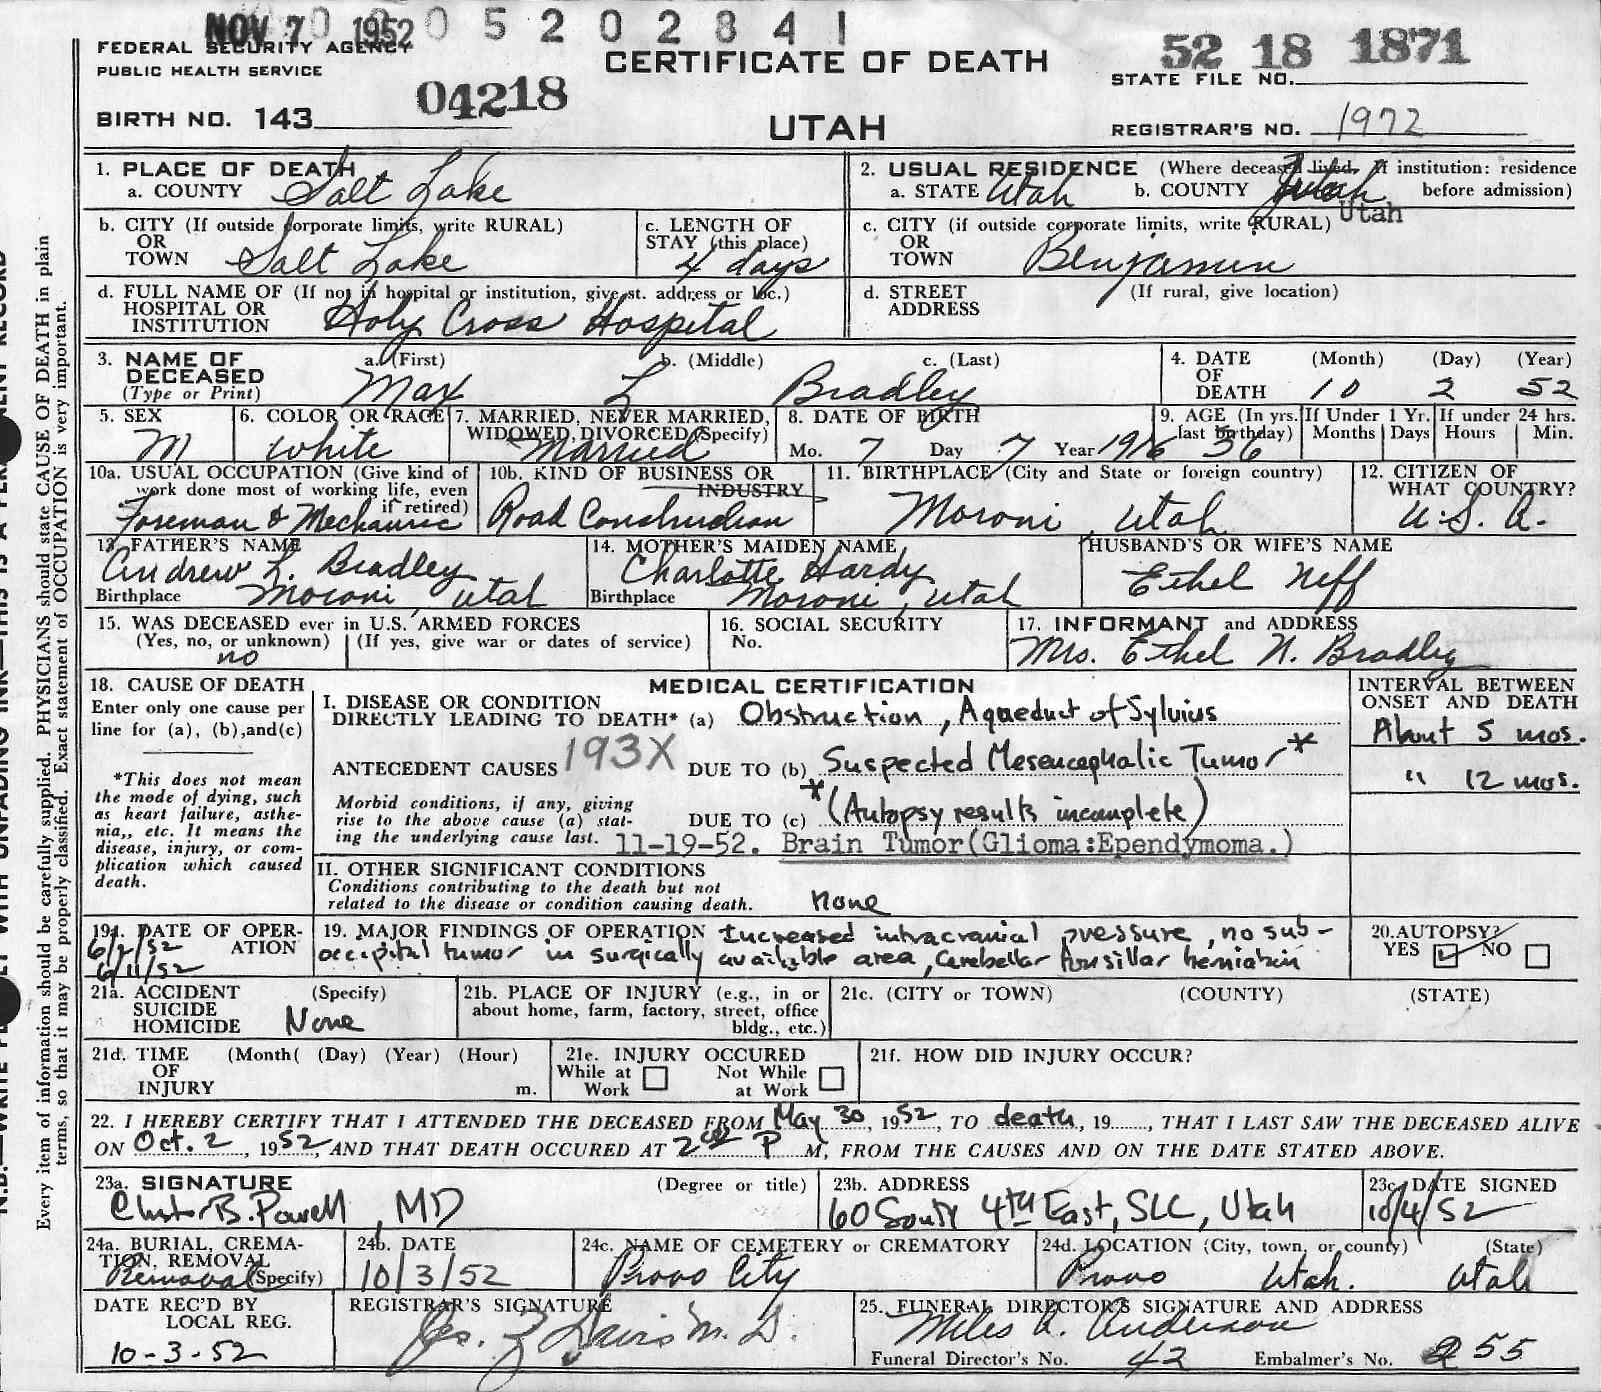 NOV 7 1952
0 0 0 5 2 0 2 8 4 1
FEDERAL SECURITY AGENCY
PUBLIC HEALTH SERVICE
CERTIFICATE OF DEATH
52 18 1871
STATE FILE NO.
BIRTH NO. 143 04218
UTAH
REGISTRAR'S NO. 1972
1. PLACE OF DEATH
a. COUNTY Salt Lake
2. USUAL RESIDENCE (Where deceased lived. If institution: residence before admission)
a. STATE Utah b. COUNTY Utah
Utah
b. CITY (If outside corporate limits, write RURAL)
OR
TOWN Salt Lake
c. LENGTH OF
STAY (this place)
4 days
c. CITY (if outside corporate limits, write RURAL)
OR
TOWN Benjamin
d. FULL NAME OF (If not in hospital or institution, give st. address or loc.)
HOSPITAL OR
INSTITUTION Holy Cross Hospital
d. STREET (If rural, give location)
ADDRESS
3. NAME OF DECEASED
(Type or Print)
a. (First) b. (Middle) c. (Last)
Max L Bradley
4. DATE OF DEATH (Month) (Day) (Year)
10 2 52
5. SEX
M
6. COLOR OR RACE
White
7. MARRIED, NEVER MARRIED,
WIDOWED, DIVORCED (Specify)
Married
8. DATE OF BIRTH
Mo. 7 Day 7 Year 1916
9. AGE (In yrs.
last birthday)
36
If Under 1 Yr.
Months Days
If under 24 hrs.
Hours Min.
10a. USUAL OCCUPATION (Give kind of
work done most of working life, even
if retired)
Foreman & Mechanic
10b. KIND OF BUSINESS OR
INDUSTRY
Road Construction
11. BIRTHPLACE (City and State or foreign country)
Moroni, Utah
12. CITIZEN OF
WHAT COUNTRY?
U.S.A.
13. FATHER'S NAME
Andrew L. Bradley
Birthplace Moroni, Utah
14. MOTHER'S MAIDEN NAME
Charlotte Hardy
Birthplace Moroni, Utah
HUSBAND'S OR WIFE'S NAME
Ethel Neff
15. WAS DECEASED ever in U.S. ARMED FORCES
(Yes, no, or unknown) (If yes, give war or dates of service)
no
16. SOCIAL SECURITY
No.
17. INFORMANT and ADDRESS
Mrs. Ethel N. Bradley
18. CAUSE OF DEATH
Enter only one cause per
line for (a), (b), and (c)
*This does not mean
the mode of dying, such
as heart failure, asthe-
nia,, etc. It means the
disease, injury, or com-
plication which caused
death.
MEDICAL CERTIFICATION
I. DISEASE OR CONDITION
DIRECTLY LEADING TO DEATH* (a) Obstruction, Aqueduct of Sylvius
ANTECEDENT CAUSES 193X DUE TO (b) Suspected Mesencephalic Tumor*
Morbid conditions, if any, giving
rise to the above cause (a) stat-
ing the underlying cause last.
DUE TO (c) *(Autopsy results incomplete)
11-19-52. Brain Tumor(Glioma:Ependymoma.)
INTERVAL BETWEEN
ONSET AND DEATH
About 5 mos.
" 12 mos.
II. OTHER SIGNIFICANT CONDITIONS
Conditions contributing to the death but not
related to the disease or condition causing death.
none
19a. DATE OF OPER-
ATION
6/2/52
6/11/52
19. MAJOR FINDINGS OF OPERATION Increased intracranial pressure, no sub-
occipital tumor in surgically available area, Cerebellar tonsillar herniation
20. AUTOPSY?
YES NO
21a. ACCIDENT (Specify)
SUICIDE
HOMICIDE None
21b. PLACE OF INJURY (e.g., in or
about home, farm, factory, street, office
bldg., etc.)
21c. (CITY or TOWN) (COUNTY) (STATE)
21d. TIME (Month( (Day) (Year) (Hour)
OF
INJURY m.
21e. INJURY OCCURED
While at Work Not While at Work
21f. HOW DID INJURY OCCUR?
22. I HEREBY CERTIFY THAT I ATTENDED THE DECEASED FROM May 30, 1952, TO death, 19......, THAT I LAST SAW THE DECEASED ALIVE
ON Oct. 2, 1952, AND THAT DEATH OCCURED AT 2 P M, FROM THE CAUSES AND ON THE DATE STATED ABOVE.
23a. SIGNATURE (Degree or title)
Chester B. Powell, MD
23b. ADDRESS
60 South 4th East, SLC, Utah
23c. DATE SIGNED
10/4/52
24a. BURIAL, CREMA-
TION, REMOVAL
(Specify)
Removal
24b. DATE
10/3/52
24c. NAME OF CEMETERY or CREMATORY
Provo City
24d. LOCATION (City, town, or county) (State)
Provo Utah. Utah
DATE REC'D BY
LOCAL REG.
10-3-52
REGISTRAR'S SIGNATURE
Davis M.D.
25. FUNERAL DIRECTOR'S SIGNATURE AND ADDRESS
Miles A. Anderson
Funeral Director's No. 42 Embalmer's No. 255
Every item of information should be carefully supplied. PHYSICIANS should state CAUSE OF DEATH in plain
terms, so that it may be properly classified. Exact statement of OCCUPATION is very important.